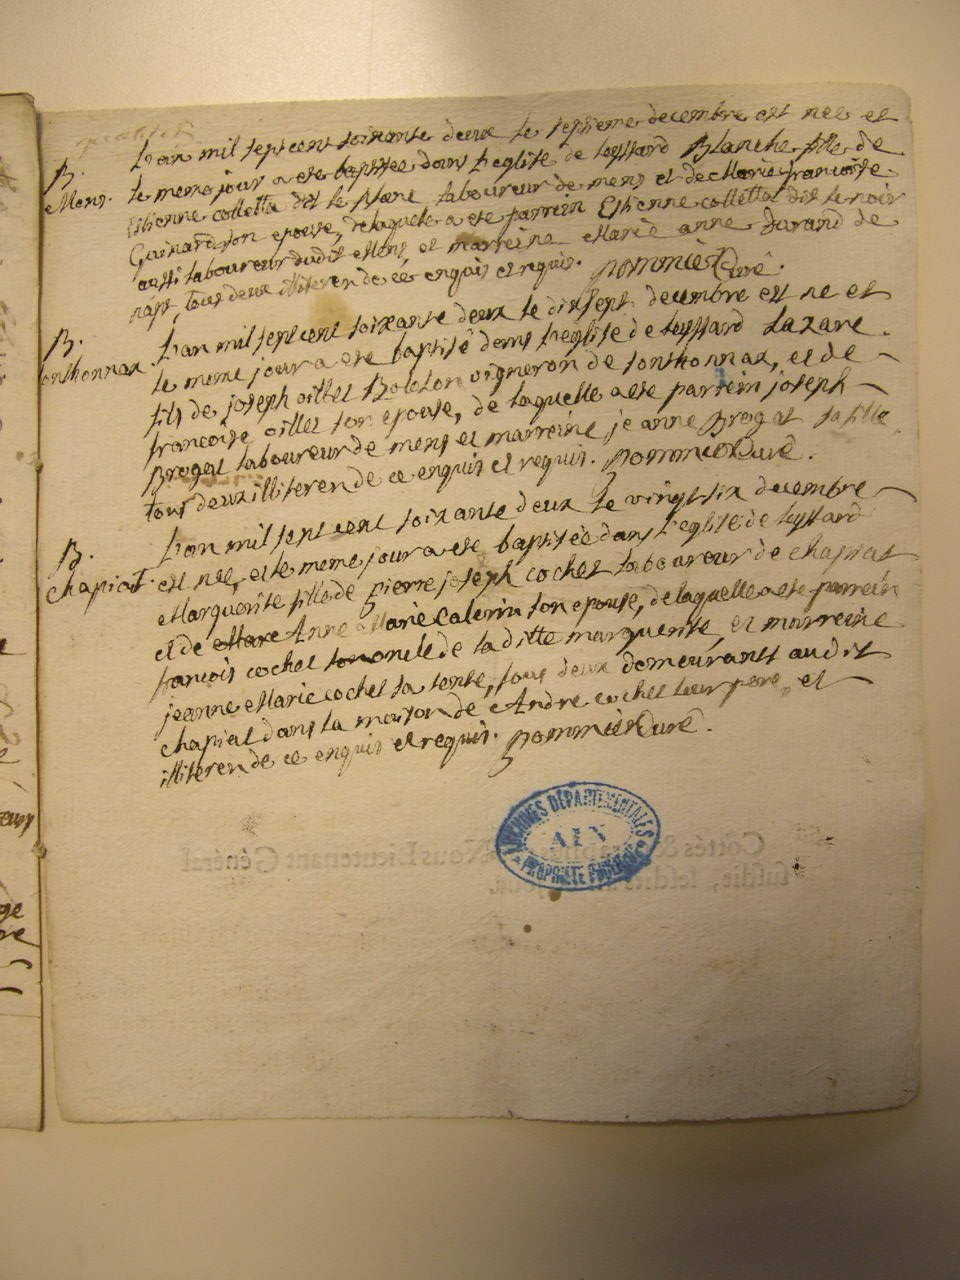 B.
Mens.
L'an mil sept cent soixante deux le septieme decembre est née et
le meme jour a ete baptisée dans l'eglise de leyssard Blanche fille de
Estienne colletta dit le blanc laboureur de mens et de Marie francoise
Guinard son epouse, de laquelle a ete parrein Estienne colletta dit le noir
aussi laboureur dudit Mens, et marreine Marie anne Durand de
tous deux illiteren de ce enquis et requis. pommier Curé.
B.
L'an mil sept cent soixante deux le dixsept decembre est ne et
le meme jour a ete baptisé dans l'eglise de leyssard Lazare
fils de joseph oillet Bolelon vigneron de sonthonnax, et de
francoise oillet son epouse, de laquelle a ete parrein joseph
Broget laboureur de mens et marreine jeanne Broget sa fille
tous deux illiteren de ce enquis et requis. pommier Curé.
B.
chapiat.
L'an mil sept cent soixante deux le vingt six decembre
est née, et le meme jour a ete baptisée dans l'eglise de leyssard
Marguerite fille de pierre joseph cochet laboureur de chapiat
et de Anne Marie Calerin son epouse, de laquelle a ete parrein
francois cochet son oncle de la ditte marguerite, et marreine
jeanne Marie cochet sa tente, tous deux demeurants audit
chapiat dans la maison de Andre cochet leur pere, et
illiteren de ce enquis et requis. pommier Curé.
ARCHIVES DÉPARTEMENTALES
AIN
PROPRIÉTÉ PUBLIQUE